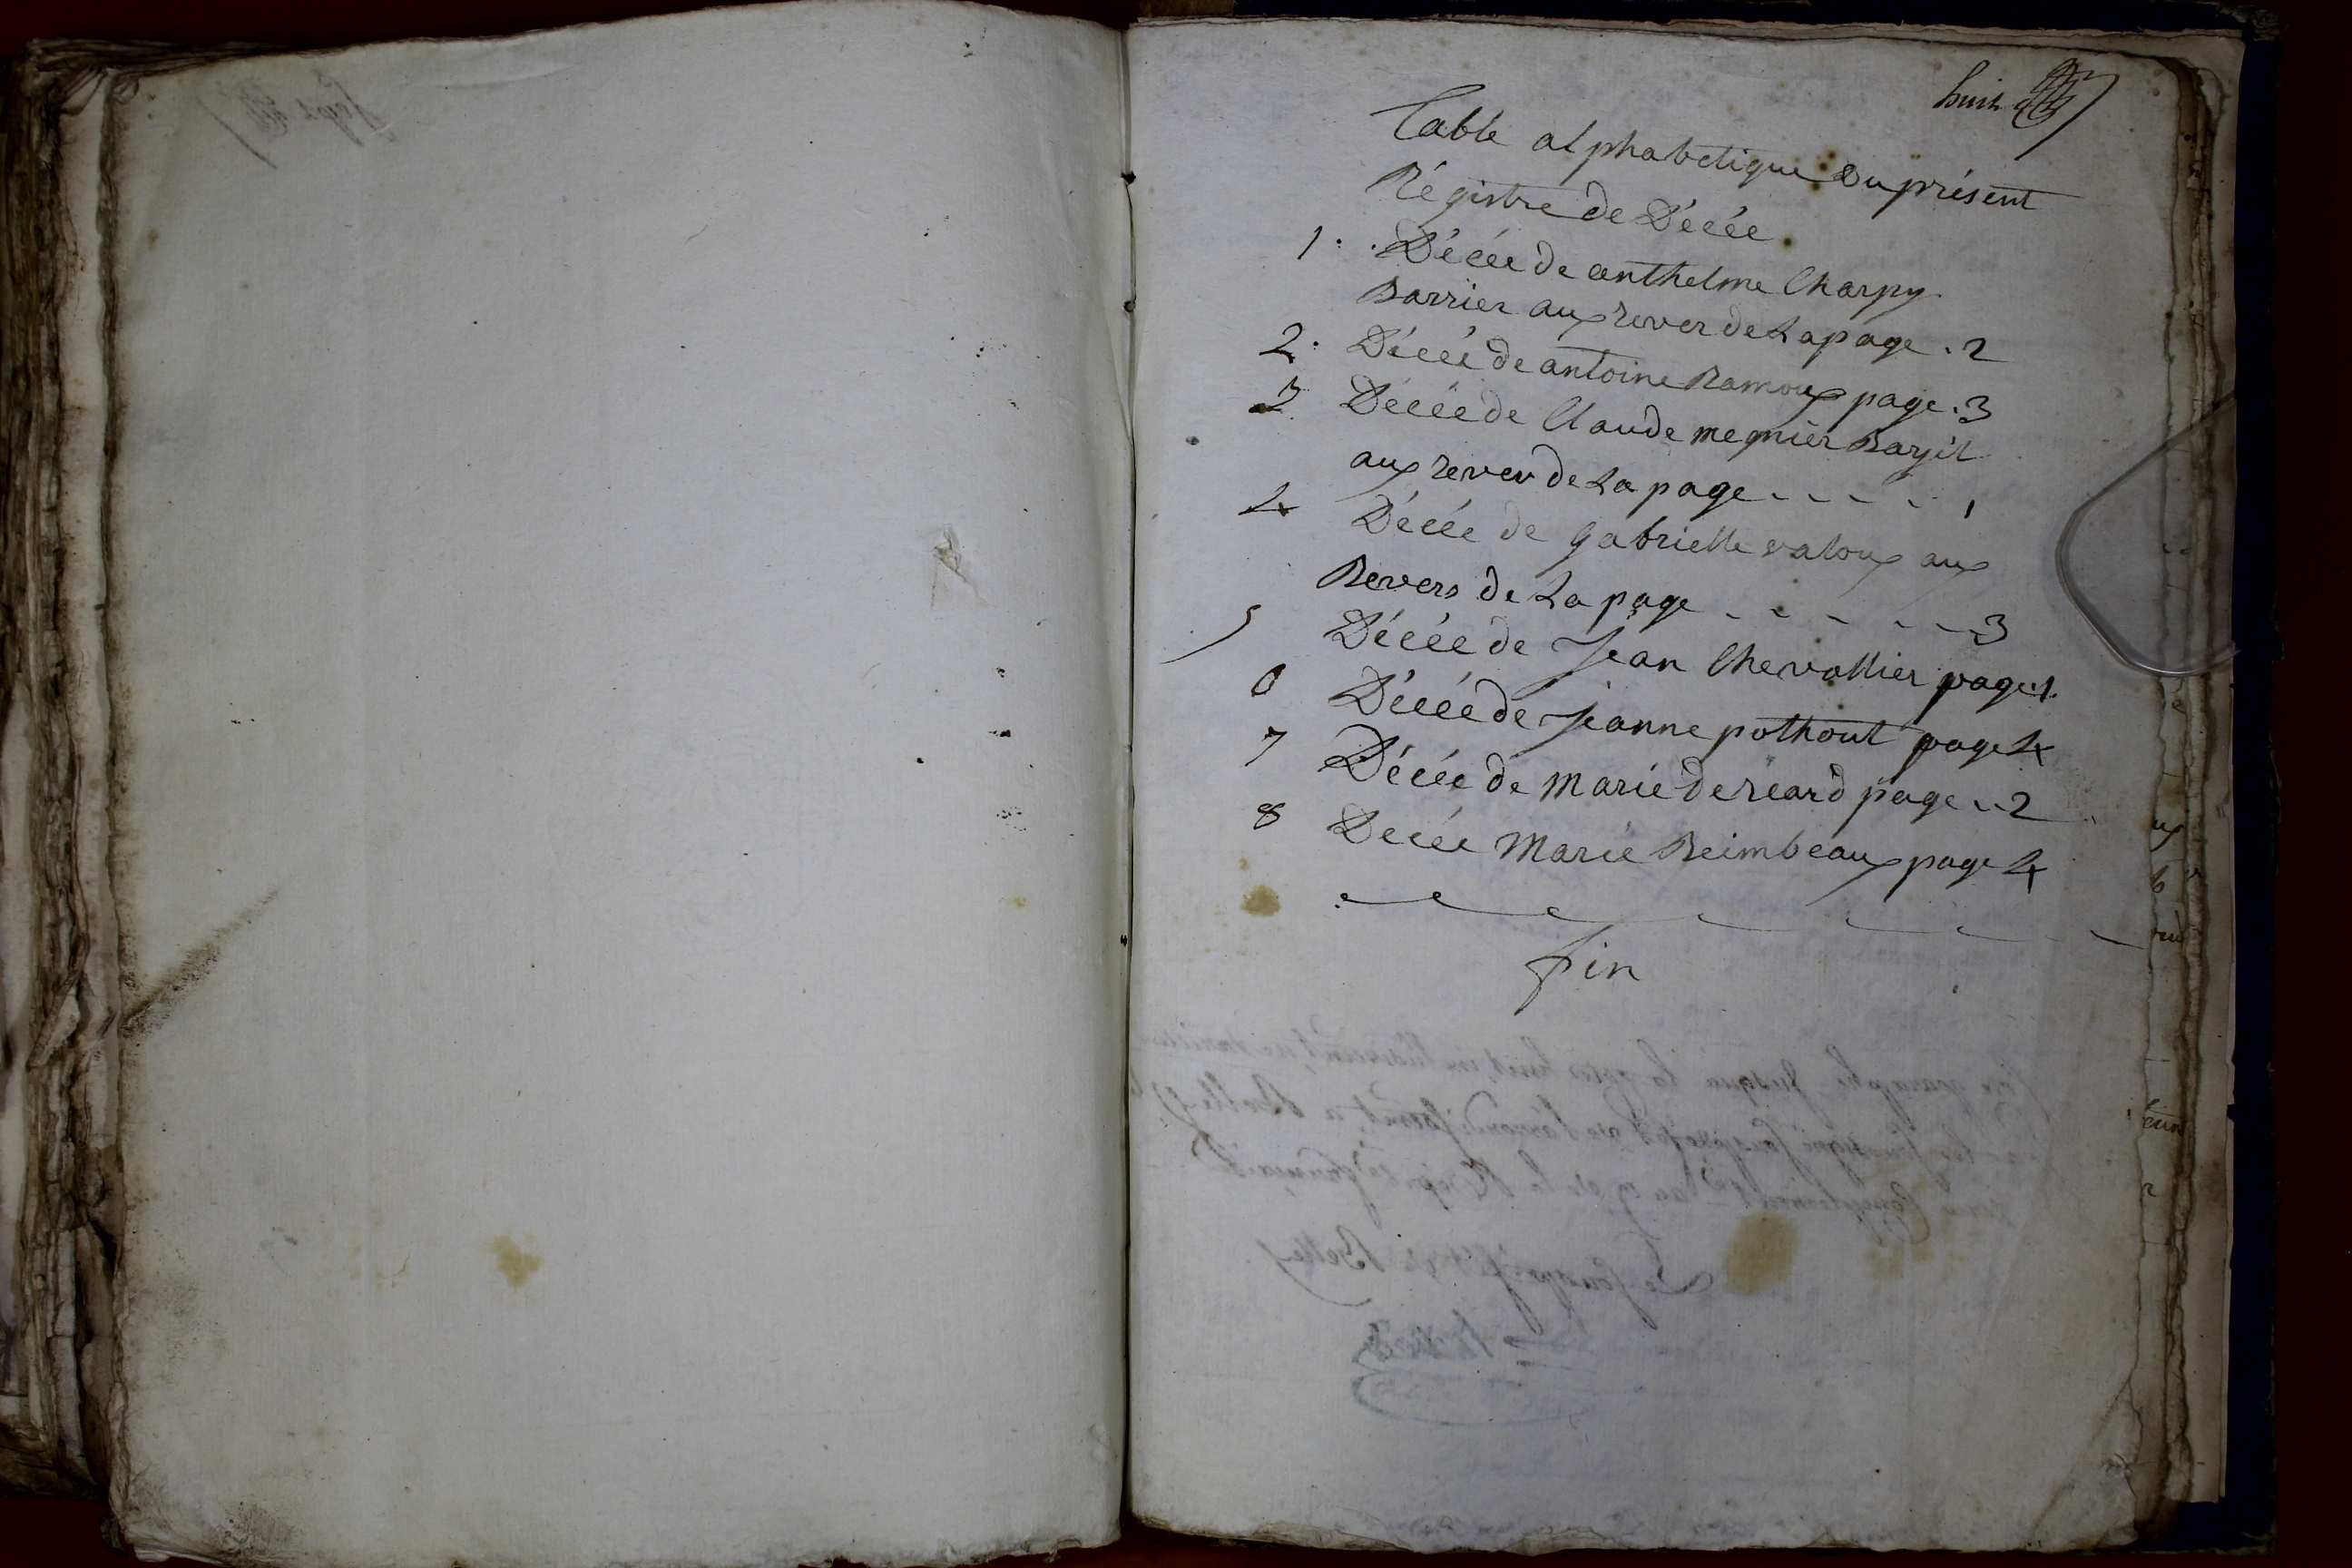 huit
Table alphabetique du présent
Régistre de Décée
1. Décée de anthelme Charpy
Barrier aux rever de La page . 2
2. Décée de antoine Ramoux page . 3
3 Décée de Claude megnier Bargit
aux rever de La page - - - - 1
4 Décée de gabrielle valoux aux
Revers de La page - - - - - 3
5 Décée de Jean Chevallier page 1.
6 Décée de Jeanne pothout page 4
7 Décée de Marie dereard page .. 2
8 Decée Marie Reimbeaux page 4
fin